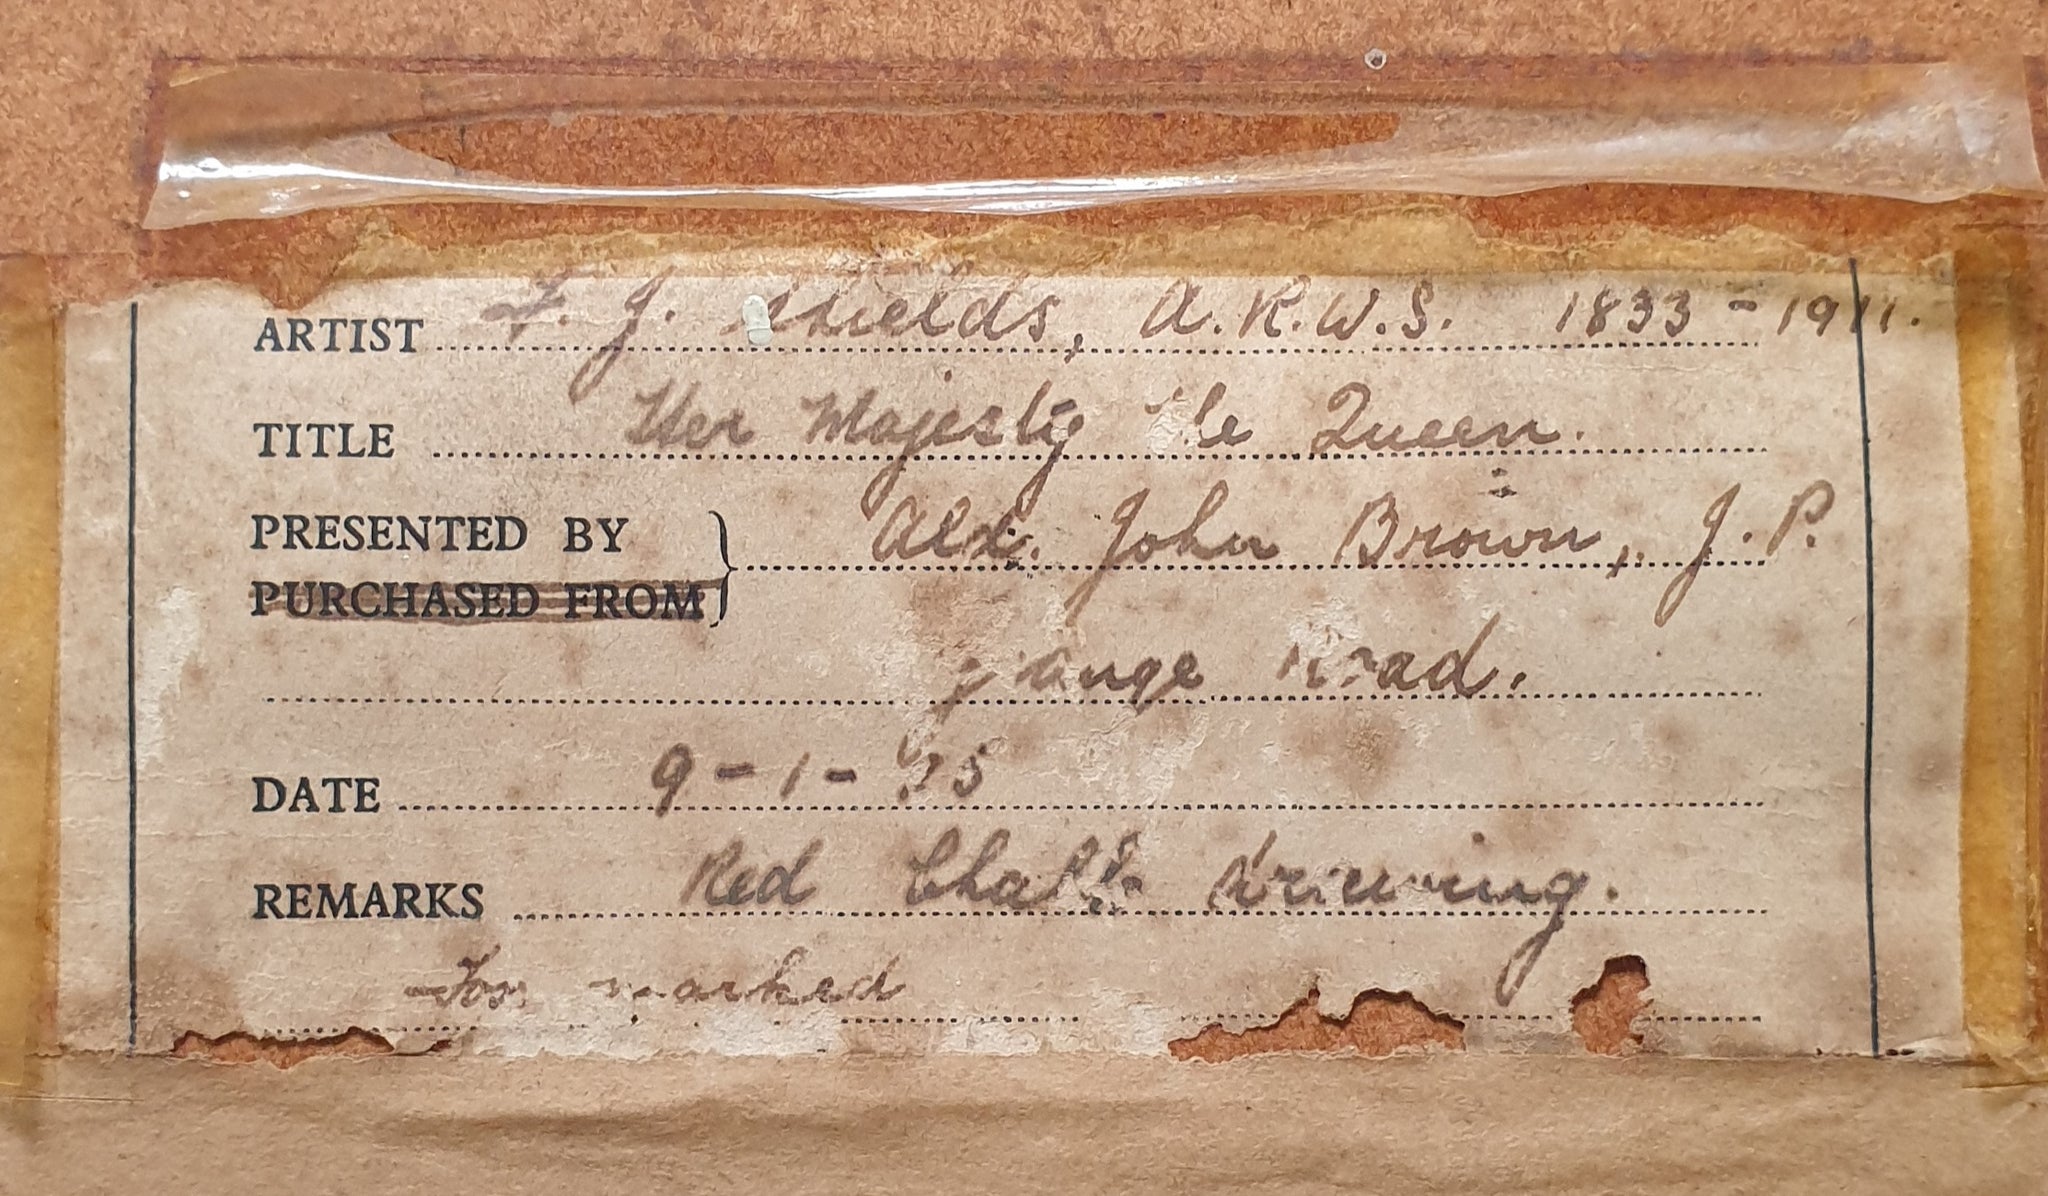 ARTIST F. J. Shields, A.R.W.S. 1833 - 1911.
TITLE Her Majesty the Queen.
PRESENTED BY Ald. John Brown, J.P.
PURCHASED FROM
Grange Road.
DATE 9-1-
REMARKS Red Chalk drawing.
Fox marked